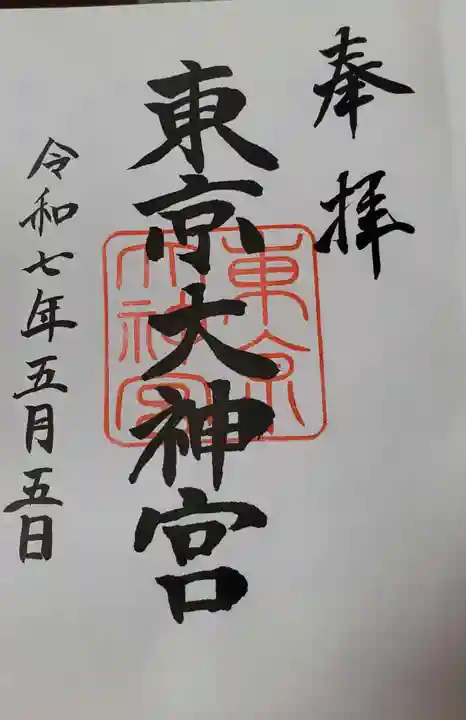 奉拝
東京大神宮
東京大神宮
令和七年五月五日